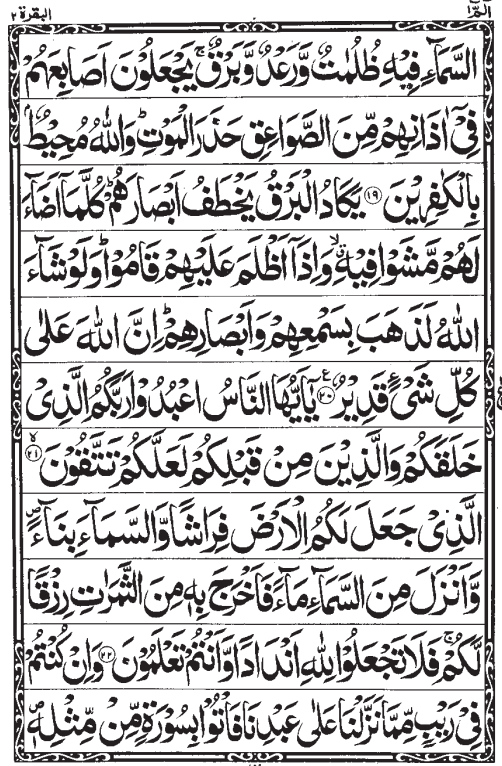 الٓمّٓ ١
البقرة ٢
السَّمَآءِ فِيْهِ ظُلُمٰتٌ وَّرَعْدٌ وَّبَرْقٌ ۚ يَجْعَلُوْنَ اَصَابِعَهُمْ
فِيْۤ اٰذَانِهِمْ مِّنَ الصَّوَاعِقِ حَذَرَ الْمَوْتِ ؕ وَاللّٰهُ مُحِيْطٌۢ
بِالْكٰفِرِيْنَ ﴿۱۹﴾ يَكَادُ الْبَرْقُ يَخْطَفُ اَبْصَارَهُمْ ؕ كُلَّمَاۤ اَضَآءَ
لَهُمْ مَّشَوْا فِيْهِ ۙۗ وَاِذَاۤ اَظْلَمَ عَلَيْهِمْ قَامُوْا ؕ وَلَوْ شَآءَ
اللّٰهُ لَذَهَبَ بِسَمْعِهِمْ وَاَبْصَارِهِمْ ؕ اِنَّ اللّٰهَ عَلٰى
كُلِّ شَیْءٍ قَدِيْرٌ ﴿۲۰﴾ ع يٰۤاَيُّهَا النَّاسُ اعْبُدُوْا رَبَّكُمُ الَّذِیْ
خَلَقَكُمْ وَالَّذِيْنَ مِنْ قَبْلِكُمْ لَعَلَّكُمْ تَتَّقُوْنَ ﴿۲۱﴾ ۙ
الَّذِیْ جَعَلَ لَكُمُ الْاَرْضَ فِرَاشًا وَّالسَّمَآءَ بِنَآءً ۪
وَّاَنْزَلَ مِنَ السَّمَآءِ مَآءً فَاَخْرَجَ بِهٖ مِنَ الثَّمَرٰتِ رِزْقًا
لَّكُمْ ۚ فَلَا تَجْعَلُوْا لِلّٰهِ اَنْدَادًا وَّاَنْتُمْ تَعْلَمُوْنَ ﴿۲۲﴾ وَاِنْ كُنْتُمْ
فِیْ رَيْبٍ مِّمَّا نَزَّلْنَا عَلٰى عَبْدِنَا فَاْتُوْا بِسُوْرَةٍ مِّنْ مِّثْلِهٖ ۪